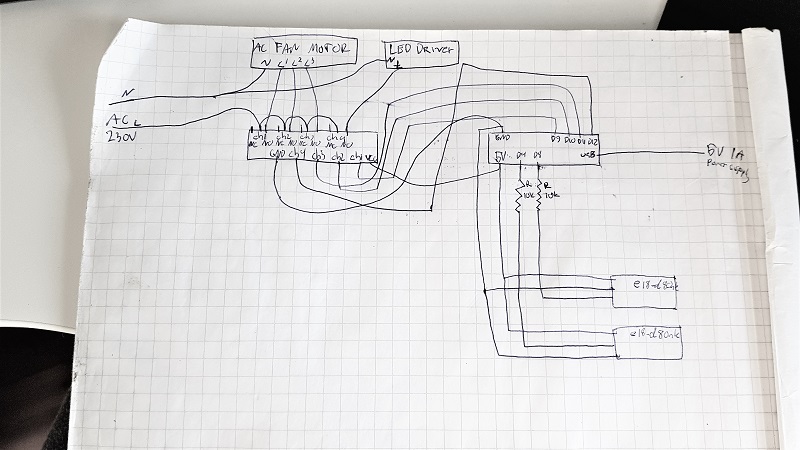 AC FAN MOTOR
N L1 L2 L3
LED DRIVER
N L
N
AC L
230V
ch1 ch2 ch3 ch4
NC NO NC NO NC NO NC NO
GND ch4 ch3 ch2 ch1 VCC
GND D9 D10 D11 D12
5V D4
USB
5V 1A
Power supply
R
10k
R
10k
e18-d80nk
e18-d80nk